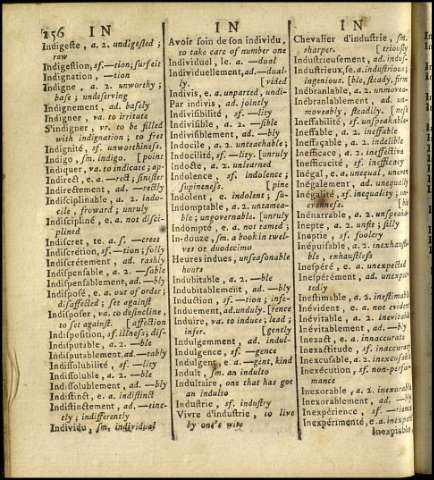 256 IN
IN
IN
Indigeste, a. 2. undigested;
raw
Indigestion, sf. —tion; surfeit
Indignation, —tion
Indigne, a. 2. unworthy;
base; undeserving
Indignement, ad. basely
Indigner, va. to irritate
S'indigner, vr. to be filled
with indignation; to fret
Indignité, sf. unworthiness.
Indigo, sm. indigo. [point
Indiquer, va. to indicate; ap-
Indirect, e, a. —rect; sinister
Indirectement, ad. —rectly
Indisciplinable, a. 2. indo-
cile, froward; unruly
Indiscipliné, e a. not disci-
plined
Indiscret, te a. s. —creet
Indiscrétion, sf. —tion; folly
Indiscrétement, ad. rashly
Indispensable, a. 2. —sable
Indispensablement, ad. —bly
Indisposé, e a. out of order;
disaffected; set against
Indisposer, va. to disincline,
to set against. [affection
Indisposition, sf. illness; dis-
Indisputable, a. 2. —ble
Indisputablement, ad. —tably
Indissolubilité, sf. —lity
Indissoluble, a. 2. —ble
Indissolublement, ad. —bly
Indistinct, e a. indistinct
Indistinctement, ad. —tinc-
tly; indifferently
Individu, sm. individual
Avoir soin de son individu,
to take care of number one
Individuel, le. a. —dual
Individuellement, ad. —dual-
ly. [vided
Indivis, e a. unparted, undi-
Par indivis, ad. jointly
Indivisibilité, sf. —lity
Indivisible, a. 2. —sible
Indivisiblement, ad. —bly
Indocile, a. 2. unteachable;
Indocilité, sf. —lity. [unruly
Indocte, a. 2. unlearned
Indolence, sf. indolence;
supineness. [pine
Indolent, e a. indolent; su-
Indomptable, a. 2. untamea-
ble; ungovernable. [unruly
Indompté, e a. not tamed;
In-douze, sm. a book in twel-
ves or duodecimo
Heures indues, unseasonable
hours
Indubitable, a. 2. —ble
Indubitablement, ad. —bly
Induction, sf. —tion; infe-
Induement, ad. unduly. [rence
Induire, va. to induce; lead;
infer. [gently
Indulgemment, ad. indul-
Indulgence, sf. —gence
Indulgent, e a. —gent, kind
Indult, sm. an indulto
Indultaire, one that has got
an indulto
Industrie, sf. industry
Vivre d'industrie, to live
by one's wits
Chevalier d'industrie, sm.
sharper. [triously
Industrieusement, ad. indus-
Industrieux, se a. industrious;
ingenious. [ble, steady, firm
Inébranlable, a. 2. unmovea-
Inébranlablement, ad. un-
moveably; steadily.
Ineffabilité, sf. unspeakable-
Ineffable, a. 2. ineffable
Ineffaçable, a. 2. indelible
Inefficace, a. 2. ineffective
Inefficacité, sf. inefficacy
Inégal, e a. unequal, uneven
Inégalement, ad. unequally
Inégalité, sf. inequality; un-
evenness
Inénarrable, a. 2. unspeakable
Inepte, a. 2. unfit; silly
Ineptie, sf. foolery
Inépuisable, a. 2. inexhausti-
ble, exhaustless
Inespéré, e a. unexpected
Inespérément, ad. unexpec-
tedly
Inestimable, a. 2. inestimable
Inévident, e a. not evident
Inévitable, a. 2. inevitable
Inévitablement, ad. —bly
Inexact, e a. innaccurate
Inexactitude, sf. inaccuracy
Inexcusable, a. 2. inexcusable
Inexécution, sf. non-perfor-
mance
Inexorable, a. 2. inexorable
Inexorablement, ad. —bly
Inexpérience, sf. —rience
Inexpérimenté, e a. inexpe-
Inexpiable